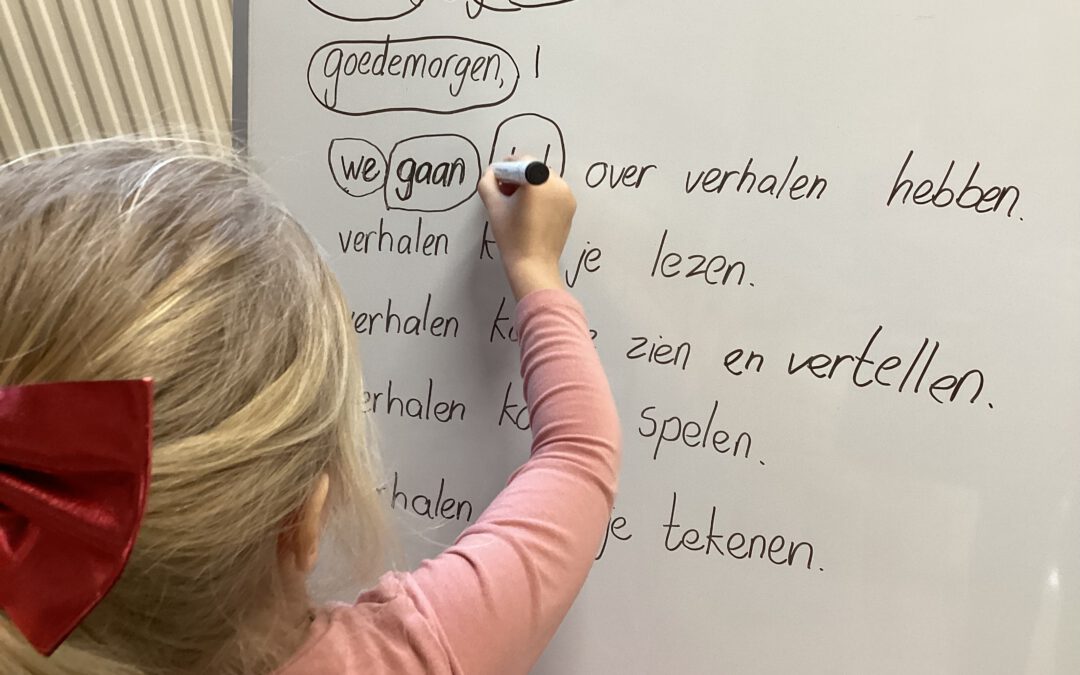 goedemorgen, !
we gaan over verhalen hebben.
verhalen je lezen.
verhalen zien en vertellen.
verhalen spelen.
je tekenen.